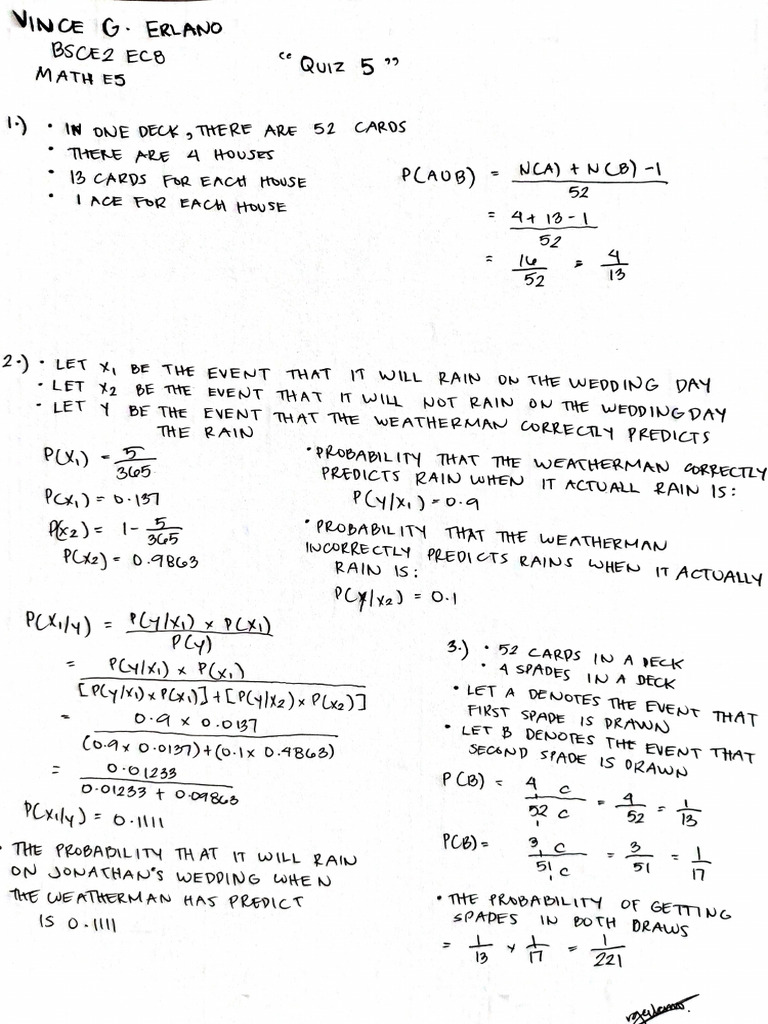 VINCE G. ERLANO
BSCE2 EC8
MATH E5
"QUIZ 5"
1.) • IN ONE DECK, THERE ARE 52 CARDS
• THERE ARE 4 HOUSES
• 13 CARDS FOR EACH HOUSE
• 1 ACE FOR EACH HOUSE
P(AUB) = N(A) + N(B) - 1 / 52
= 4 + 13 - 1 / 52
= 16/52 = 4/13
2.) • LET X1 BE THE EVENT THAT IT WILL RAIN ON THE WEDDING DAY
• LET X2 BE THE EVENT THAT IT WILL NOT RAIN ON THE WEDDING DAY
• LET Y BE THE EVENT THAT THE WEATHERMAN CORRECTLY PREDICTS
THE RAIN
P(X1) = 5/365
P(X1) = 0.137
P(X2) = 1 - 5/365
P(X2) = 0.9863
• PROBABILITY THAT THE WEATHERMAN CORRECTLY
PREDICTS RAIN WHEN IT ACTUALL RAIN IS:
P(Y/X1) = 0.9
• PROBABILITY THAT THE WEATHERMAN
INCORRECTLY PREDICTS RAINS WHEN IT ACTUALLY
RAIN IS:
P(Y/X2) = 0.1
P(X1/Y) = P(Y/X1) x P(X1) / P(Y)
= P(Y/X1) x P(X1) / [P(Y/X1) x P(X1)] + [P(Y/X2) x P(X2)]
= 0.9 x 0.0137 / (0.9 x 0.0137) + (0.1 x 0.4863)
= 0.01233 / 0.01233 + 0.09863
P(X1/Y) = 0.1111
• THE PROBABILITY THAT IT WILL RAIN
ON JONATHAN'S WEDDING WHEN
THE WEATHERMAN HAS PREDICT
IS 0.1111
3.) • 52 CARDS IN A DECK
• 4 SPADES IN A DECK
• LET A DENOTES THE EVENT THAT
FIRST SPADE IS DRAWN
• LET B DENOTES THE EVENT THAT
SECOND SPADE IS DRAWN
P(B) = 4 1 C / 52 1 C = 4/52 = 1/13
P(B) = 3 1 C / 51 1 C = 3/51 = 1/17
• THE PROBABILITY OF GETTING
SPADES IN BOTH DRAWS
= 1/13 x 1/17 = 1/221